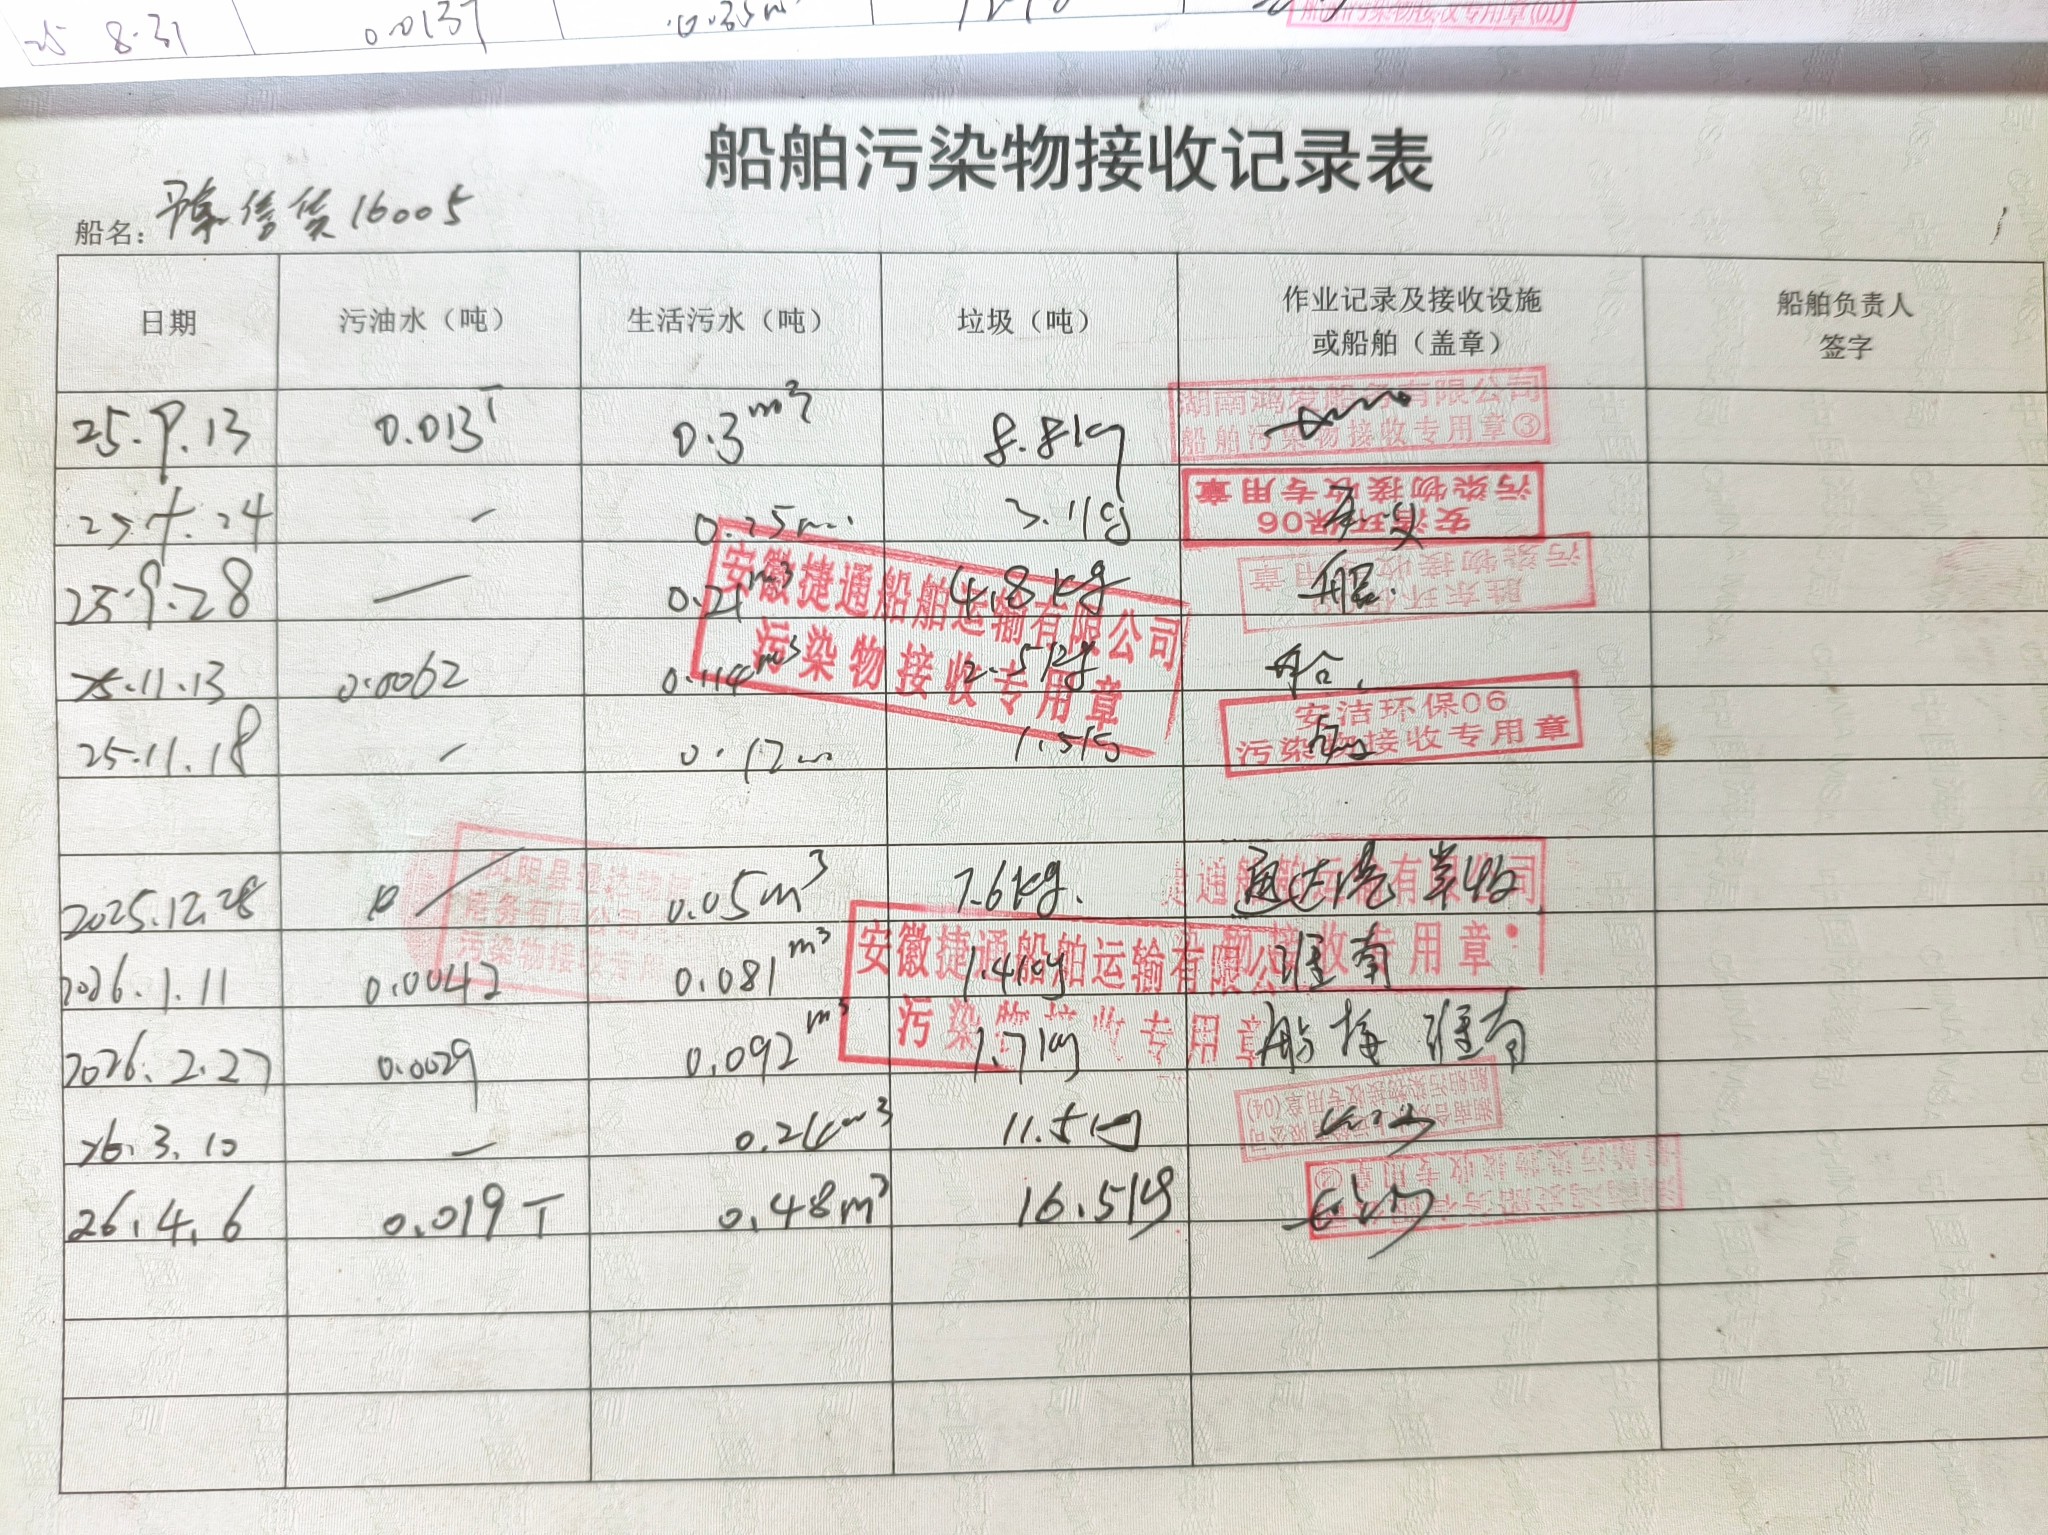 25 8.31 0.0137 0.35m³
船舶污染物接收记录表
船名： 信货16005
日期 污油水（吨） 生活污水（吨） 垃圾（吨） 作业记录及接收设施或船舶（盖章） 船舶负责人签字
25.9.13 0.013T 0.3m³ 8.8kg
湖南鸿发船务有限公司
船舶污染物接收专用章③
24 — 3.1kg
安洁环保06
污染物接收专用章
25.9.28 — 0.21m³ 4.8kg
胜东环保
污染物接收专用章
安徽捷通船舶运输有限公司
污染物接收专用章
25.11.13 0.0062 0.114m³ 2.5kg 船
25.11.18 — 0.12m 1.5kg
安洁环保06
污染物接收专用章
2025.12.28 0.05m³ 7.6kg. 通达港 收
凤阳县通达物流
港务有限公司
污染物接收专用
捷通船舶运输有限公司
接收专用章
2026.1.11 0.0042 0.081m³ 1.4kg 淮南
安徽捷通船舶运输有限公司
污染物接收专用章
2026.2.27 0.0029 0.092m³ 1.7kg 船接 淮南
26.3.10 — 11.5kg
船舶污染物接收专用章(04)
26.4.6 0.019T 0.48m³ 16.5kg
船舶污染物接收专用章②